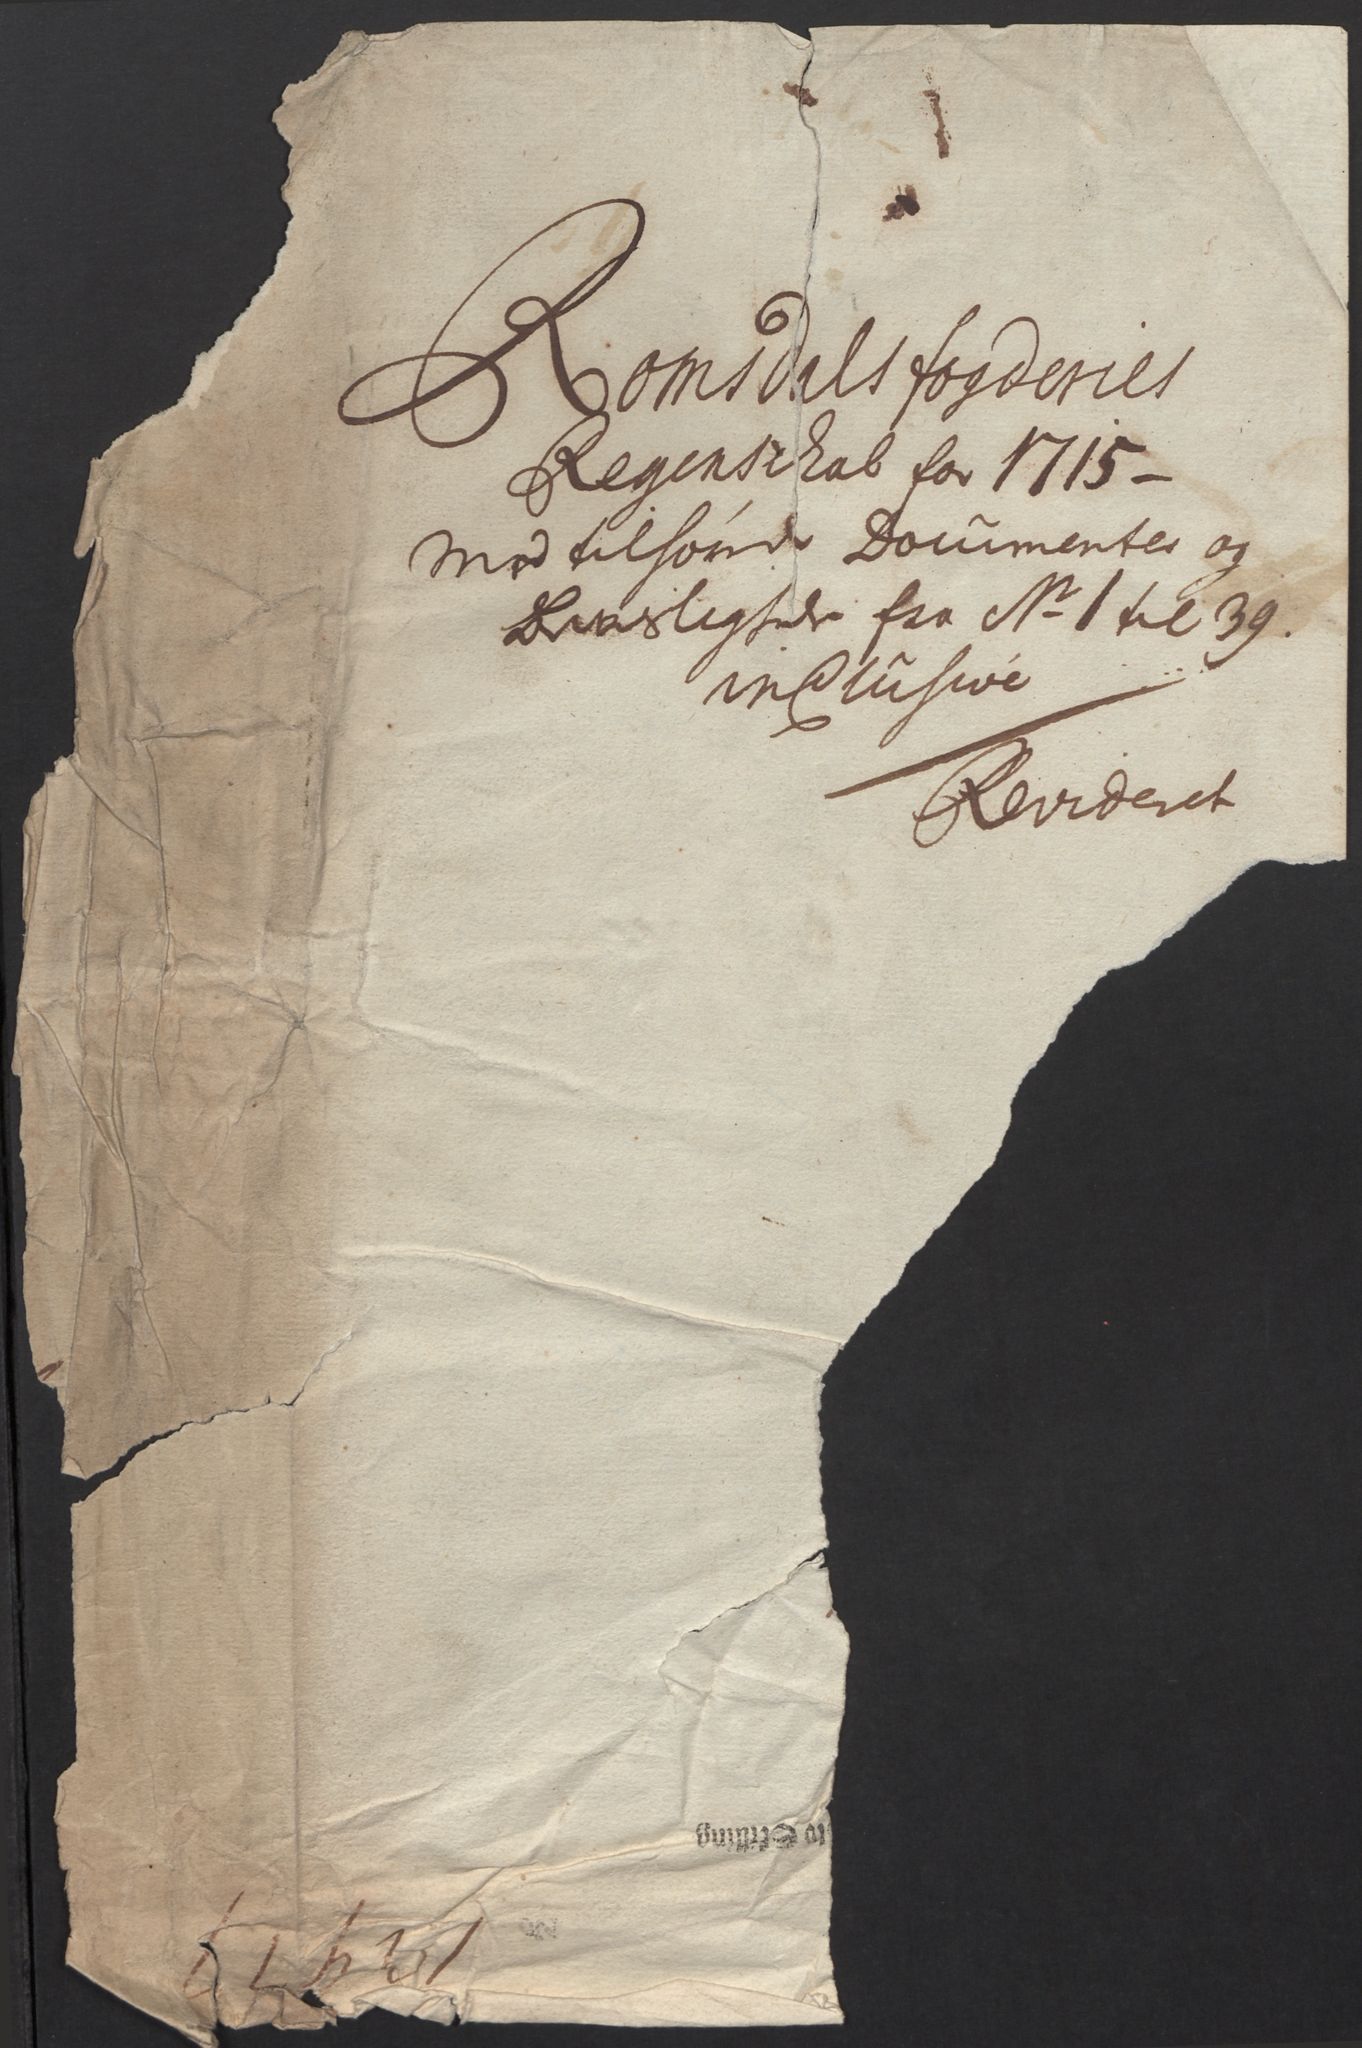 Romsdals fogderies
Regenskab for 1715 –
med tilhörende Documenter og
fra No 1 til 39.
inclusive
Revideret
to Skilling